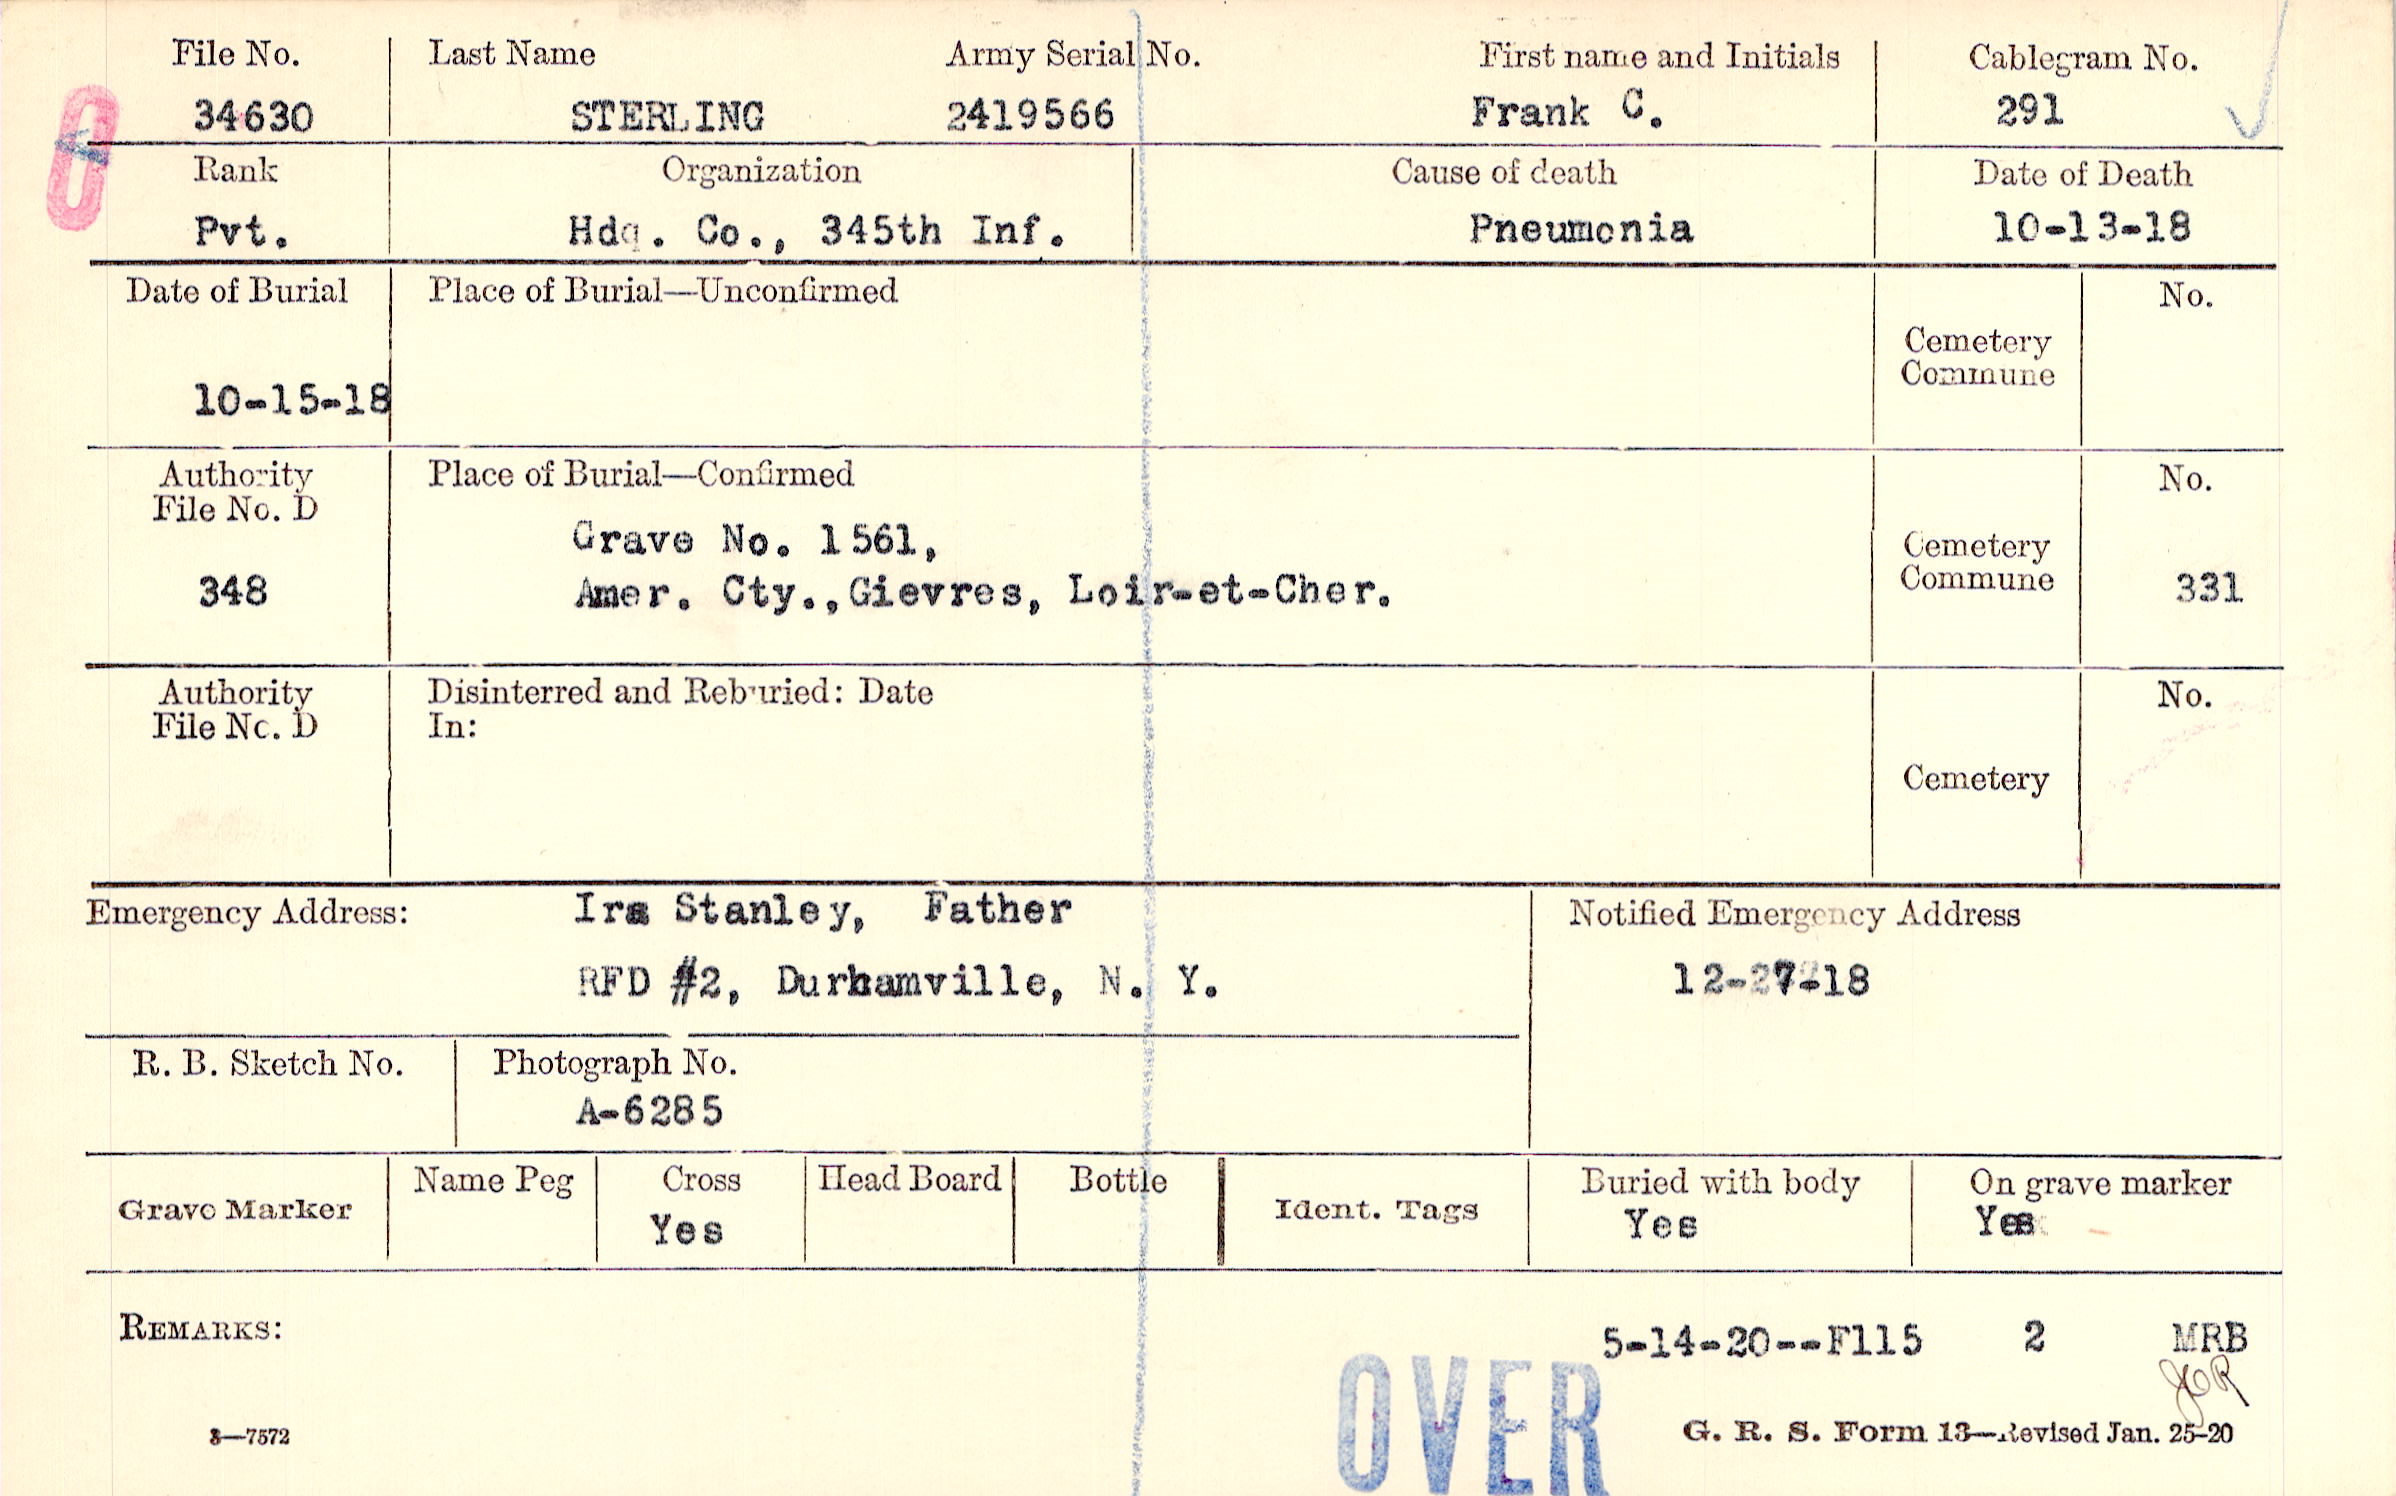 File No. Last Name Army Serial No. First name and Initials Cablegram No.
34630 STERLING 2419566 Frank C. 291
Rank Organization Cause of death Date of Death
Pvt. Hdq. Co., 345th Inf. Pneumonia 10-13-18
Date of Burial Place of Burial—Unconfirmed No.
Cemetery
Commune
10-15-18
Authority Place of Burial—Confirmed No.
File No. D
Grave No. 1561, Cemetery
348 Amer. Cty., Gievres, Loir-et-Cher. Commune 331
Authority Disinterred and Reburied: Date No.
File No. D In:
Cemetery
Emergency Address: Ira Stanley, Father Notified Emergency Address
RFD #2, Durhamville, N. Y. 12-27-18
R. B. Sketch No. Photograph No.
A-6285
Grave Marker Name Peg Cross Head Board Bottle Ident. Tags Buried with body On grave marker
Yes Yes Yes
REMARKS: 5-14-20--F115 2 MRB
OVER
3—7572 G. R. S. Form 13—Revised Jan. 25-20